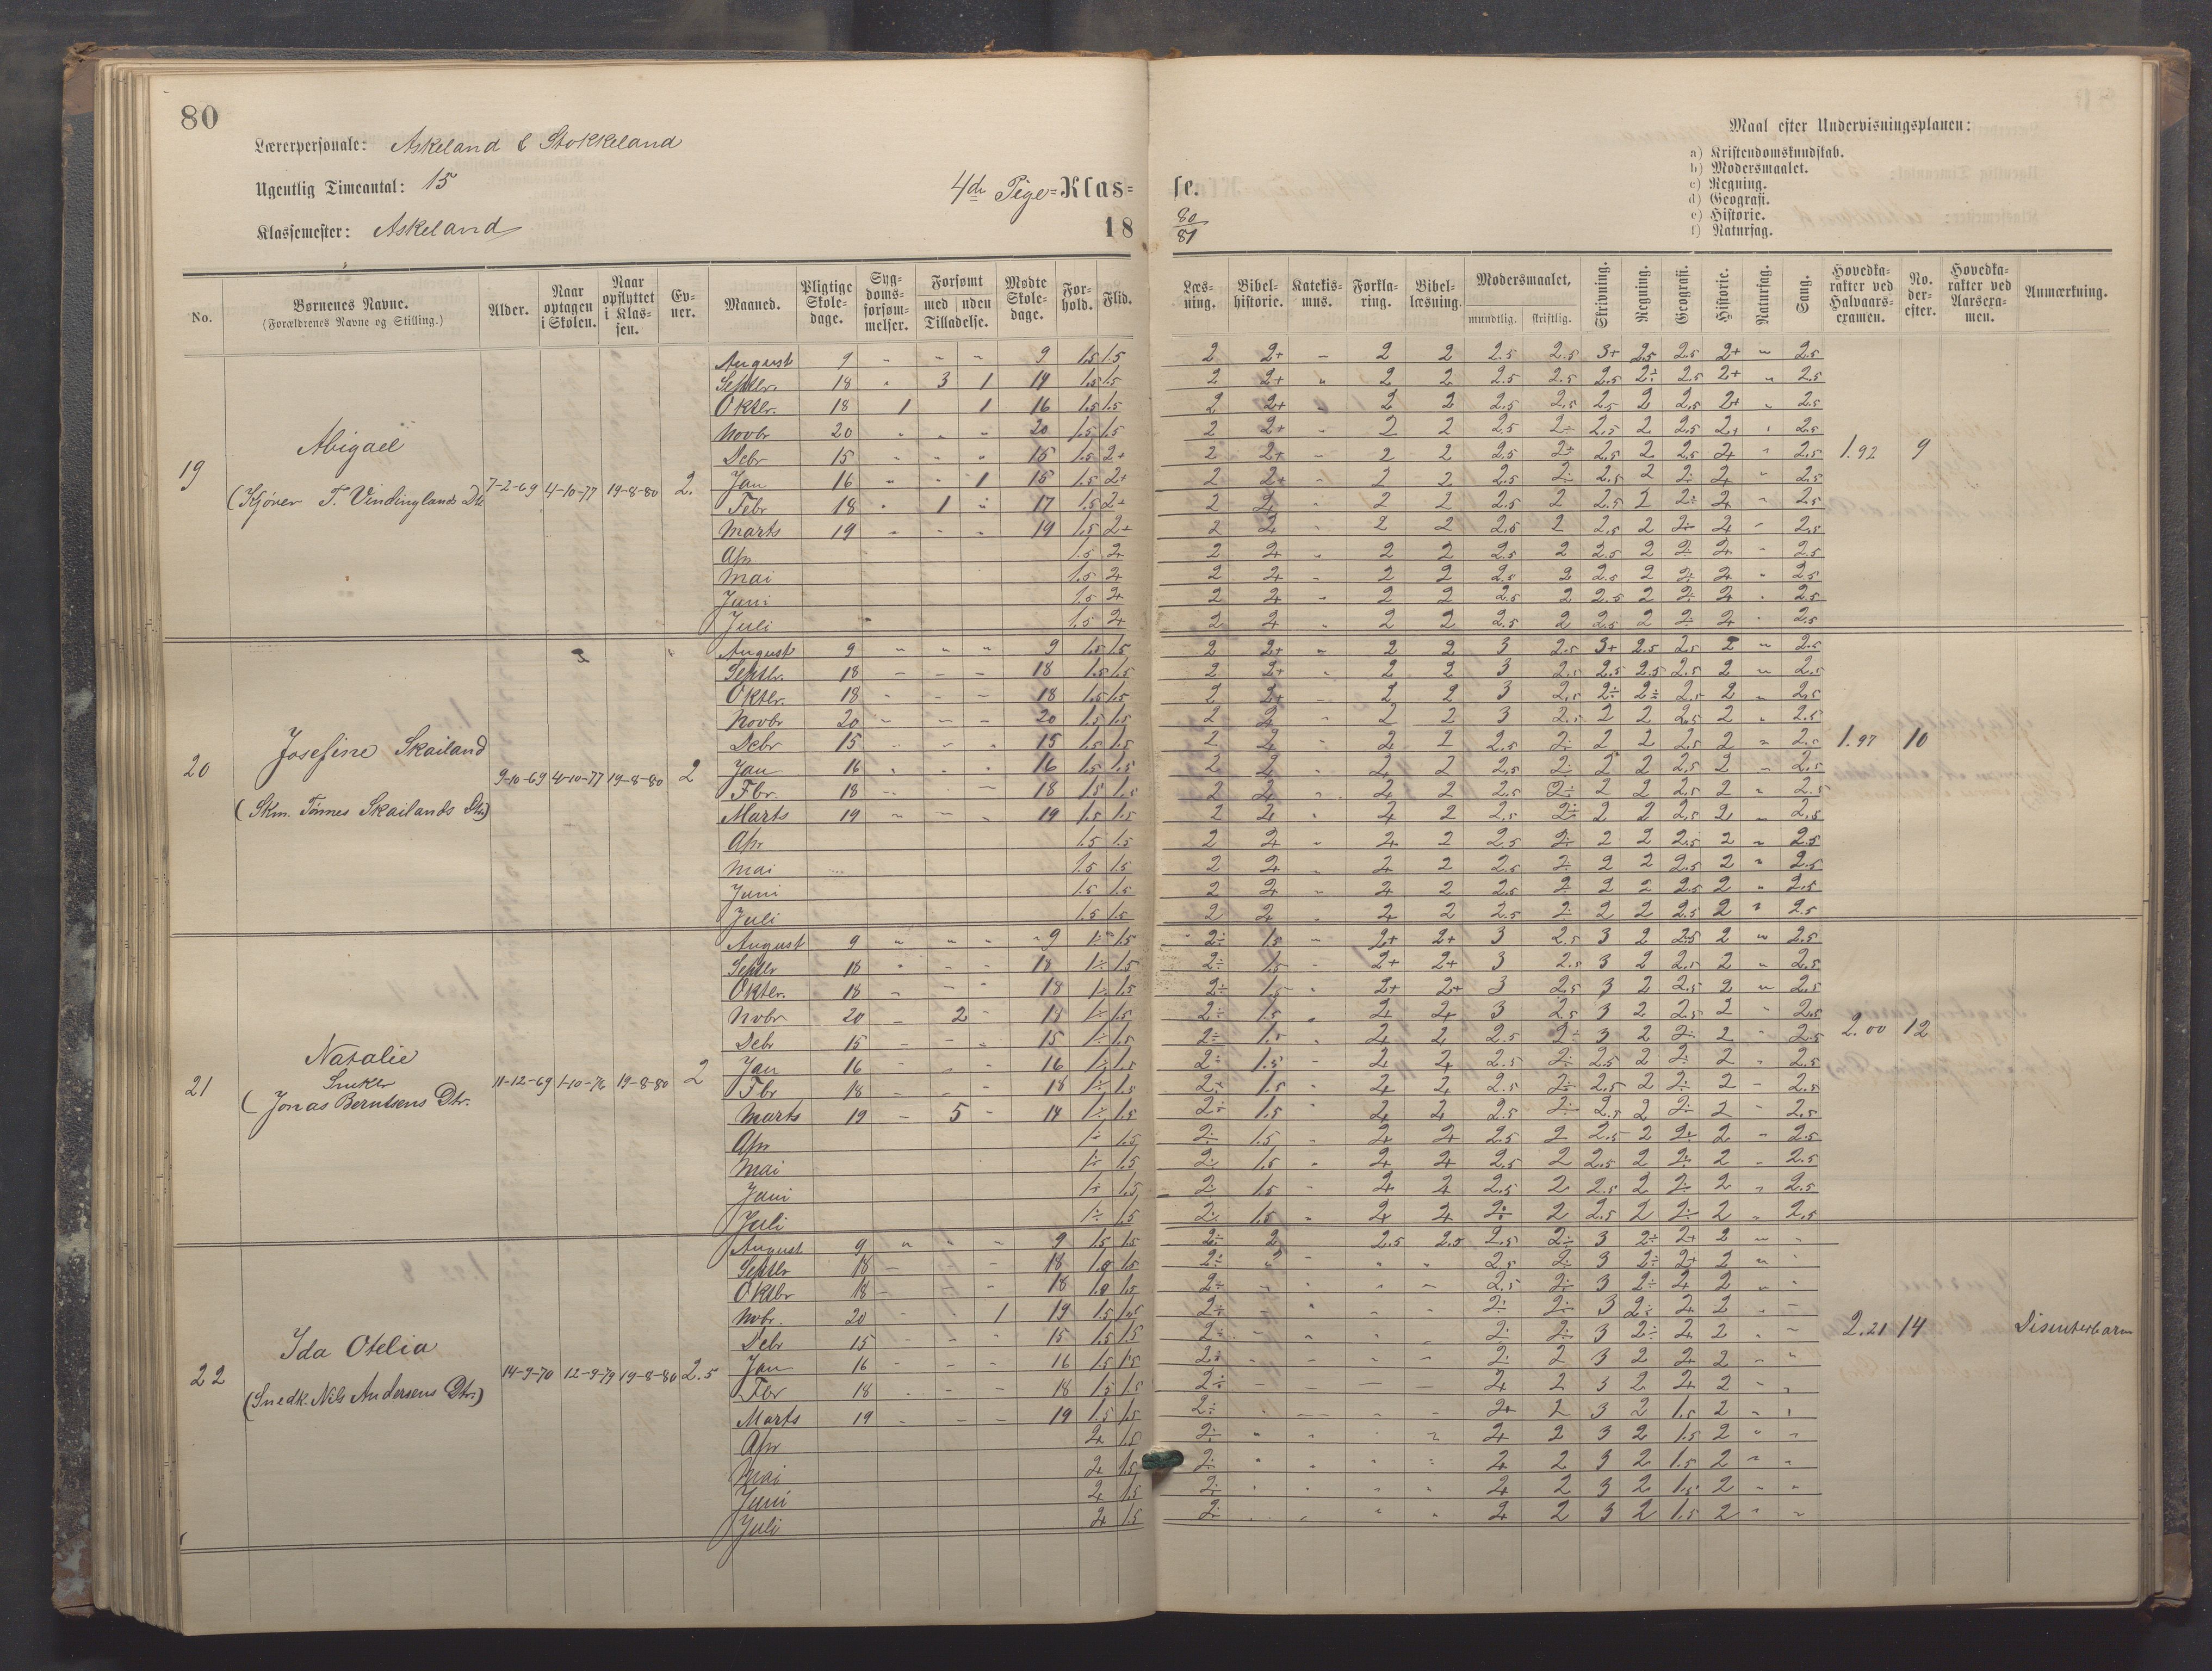 80
Lærerpersonale: Askeland & Stokkeland
Ugentlig Timeantal: 15
Klassemester: Askeland
4de Pige-Klas=
18
se.
80
81
Maal efter Undervisningsplanen:
a) Kristendomskundskab.
b) Modersmaalet.
c) Regning.
d) Geografi.
e) Historie.
f) Naturfag.
No. Børnenes Navne. (Forældrenes Navne og Stilling.) Alder. Naar optagen i Skolen. Naar opflyttet i Klassen. Evner. Maaned. Pligtige Skoledage. Sygdomsforsømmelser. Forsømt med uden Tilladelse. Mødte Skoledage. Forhold. Flid.
Læsning. Bibelhistorie. Katekismus. Forklaring. Bibellæsning. Modersmaalet, mundtlig. skriftlig. Skrivning. Regning. Geografi. Historie. Naturfag. Sang. Hovedkarakter ved Halvaarsexamen. No. derefter. Hovedkarakter ved Aarsexamen. Anmærkning.
19 Abigael
(Kjører T. Vindinglands Dtr
7-2-69 4-10-77 19-8-80 2.
August 9 " " " 9 1.5 1.5 2 2+ – 2 2 2.5 2.5 3+ 2.5 2.5 2+ " 2.5
Septbr. 18 " 3 1 14 1.5 1.5 2 2+ " 2 2 2.5 2.5 2.5 2÷ 2.5 2+ " 2.5
Oktbr. 18 1 1 16 1.5 1.5 2 2+ " 2 2 2.5 2.5 2.5 2 2.5 2+ " 2.5
Novbr 20 " " " 20 1.5 1.5 2 2+ " 2 2 2.5 2÷ 2.5 2 2.5 2+ " 2.5
Debr 15 " " " 15 1.5 2+ 2 2+ – 2 2 2.5 2÷ 2.5 2 2.5 2+ " 2.5
1.92 9
Jan 16 " " 1 15 1.5 2+ 2 2+ – 2 2 2.5 2÷ 2.5 2 2÷ 2+ " 2.5
Febr 18 " 1 " 17 1.5 2+ 2 2+ " 2 2 2.5 2 2.5 2 2÷ 2+ " 2.5
Marts 19 " " " 19 1.5 2+ 2 2+ " 2 2 2.5 2 2.5 2 2÷ 2+ " 2.5
Apr 1.5 2+ 2 2+ " 2 2 2.5 2 2.5 2 2÷ 2+ " 2.5
Mai 1.5 2+ 2 2+ " 2 2 2.5 2 2.5 2 2÷ 2+ " 2.5
Juni 1.5 2+ 2 2+ " 2 2 2.5 2 2.5 2 2÷ 2+ " 2.5
Juli 1.5 2+ 2 2+ " 2 2 2.5 2 2.5 2 2÷ 2+ " 2.5
20 Josefine Skailand
(Skm. Tønnes Skailands Dtr)
9-10-69 4-10-77 19-8-80 2
August 9 " " " 9 1.5 1.5 2 2+ " 2 2 3 2.5 3+ 2.5 2.5 2 " 2.5
Septbr. 18 – – – 18 1.5 1.5 2 2+ " 2 2 3 2.5 2.5 2.5 2.5 2 " 2.5
Oktbr. 18 – – – 18 1.5 1.5 2 2+ – 2 2 3 2.5 2÷ 2÷ 2.5 2 " 2.5
Novbr 20 – – – 20 1.5 1.5 2 2+ " 2 2 3 2.5 2 2 2.5 2 " 2.5
Debr 15 – – " 15 1.5 1.5 2 2+ " 2+ 2 2.5 2÷ 2 2 2.5 2 " 2.5
1.97 10
Jan 16 " " " 16 1.5 1.5 2 2+ " 2+ 2 2.5 2÷ 2 2 2.5 2 – 2.5
Fbr. 18 – – 18 1.5 1.5 2 2+ " 2+ 2 2.5 2÷ 2 2 2.5 2 " 2.5
Marts 19 – – " 19 1.5 1.5 2 2+ " 2+ 2 2.5 2÷ 2 2 2.5 2 " 2.5
Apr 1.5 1.5 2 2+ " 2+ 2 2.5 2÷ 2 2 2.5 2 " 2.5
Mai 1.5 1.5 2 2+ " 2+ 2 2.5 2÷ 2 2 2.5 2 " 2.5
Juni 1.5 1.5 2 2+ " 2+ 2 2.5 2÷ 2 2 2.5 2 " 2.5
Juli 1.5 1.5 2 2+ " 2+ 2 2.5 2÷ 2 2 2.5 2 " 2.5
21 Natalie
Snekker
(Jonas Berntsens Dtr.
11-12-69 1-10-76 19-8-80 2
August 9 " " " 9 1÷ 1.5 2÷ 1.5 – 2+ 2+ 3 2.5 3 2 2.5 2 " 2.5
Septbr 18 " – – 18 1÷ 1.5 2÷ 1.5 – 2+ 2+ 3 2.5 3 2 2.5 2 " 2.5
Oktbr. 18 – – " 18 1÷ 1.5 2÷ 1.5 " 2+ 2+ 3 2.5 3 2 2.5 2 " 2.5
Nobr 20 – 2 – 18 1÷ 1.5 2÷ 1.5 " 2+ 2+ 3 2.5 3 2 2.5 2 " 2.5
Debr 15 – – – 15 1÷ 1.5 2÷ 1.5 " 2+ 2+ 2.5 2÷ 3 2 2÷ 2 " 2.5
2.00 12
Jan 16 – – – 16 1÷ 1.5 2÷ 1.5 – 2+ 2+ 2.5 2÷ 2.5 2 2÷ 2 " 2.5
Fbr 18 – – " 18 1÷ 1.5 2÷ 1.5 " 2+ 2+ 2.5 2÷ 2.5 2 2÷ 2 – 2.5
Marts 19 – 5 – 14 1÷ 1.5 2÷ 1.5 " 2+ 2+ 2.5 2÷ 2.5 2 2÷ 2 – 2.5
Apr 1÷ 1.5 2÷ 1.5 " 2+ 2+ 2.5 2 2.5 2 2÷ 2 – 2.5
Mai 1÷ 1.5 2÷ 1.5 " 2+ 2+ 2.5 2 2.5 2 2÷ 2 – 2.5
Juni 1÷ 1.5 2÷ 1.5 – 2+ 2+ 2.5 2 2.5 2 2÷ 2 " 2.5
Juli 1÷ 1.5 2÷ 1.5 " 2+ 2+ 2÷ 2 2.5 2 2÷ 2 " 2.5
22 Ida Otelia
(Snedk. Nils Andersens Dtr.)
14-9-70 12-9-79 19-8-80 2.5
August 9 " " " 9 1.5 1.5 2÷ 2 2.5 2.5 2.5 2÷ 3 2÷ 2+ 2 " "
Septbr 18 – – 18 1.5 2÷ " – " " 2.5 2÷ 3 2÷ 2+ 2 " "
Oktbr 18 – – – 18 1.5 2÷ – " " – 2.5 2÷ 3 2÷ 2+ 2 " "
Nobr. 20 – " 1 19 1.5 1.5 2÷ – " – – 2÷ 2÷ 3 2÷ 2+ 2 " –
Debr 15 – – " 15 1.5 1.5 2÷ – – " " 2÷ 2÷ 3 2÷ 2+ 2 " –
2.21 14 Disenterbarn
Jan 16 – – – 16 1.5 1.5 2÷ – – – – 2÷ 2 3 2 2+ 2 " "
Fbr 18 " – – 18 1.5 1.5 2÷ – – – – 2+ 2 3 2 2+ 2 " "
Marts 19 – – – 19 1.5 1.5 2÷ " – – – 2+ 2 3 2 1.5 2 " "
Apr 2+ 1.5 2÷ " " " " 2+ 2 3 2 1.5 2 " "
Mai 2+ 1.5 2÷ " " " " 2+ 2 3 2 1.5 2 " "
Juni 2+ 1.5 2÷ " " " " 2+ 2 3 2 1.5 2 " "
Juli 2+ 1.5 2÷ " " " " 2+ 2 3 2 1.5 2 " "